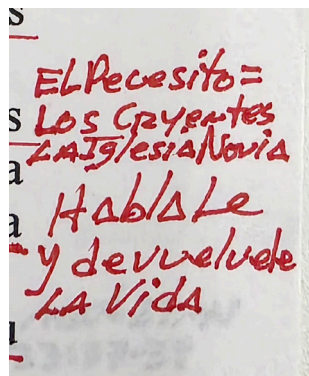 s
EL Pecesito =
s
Los Cryentes
LA Iglesia Novia
a
HAblA Le
a
y devuelvele
LA Vida
u